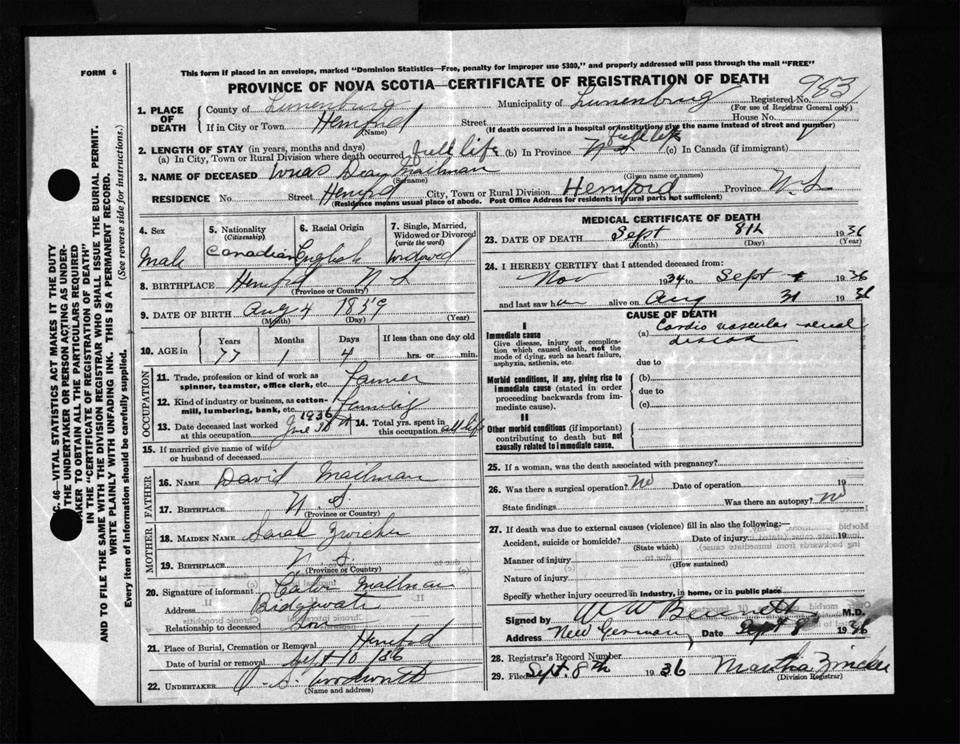 FORM 6
This form if placed in an envelope, marked "Dominion Statistics—Free, penalty for improper use $300," and properly addressed will pass through the mail "FREE"
PROVINCE OF NOVA SCOTIA—CERTIFICATE OF REGISTRATION OF DEATH
983
1. PLACE OF DEATH
County of Lunenburg Municipality of Lunenburg Registered No.
(For use of Registrar General only)
If in City or Town Hemford Street House No.
(Name) (If death occurred in a hospital or institution, give the name instead of street and number)
2. LENGTH OF STAY (in years, months and days)
(a) In City, Town or Rural Division where death occurred full life (b) In Province full life N S (c) In Canada (if immigrant)
3. NAME OF DECEASED Dean Mailman
(Surname) (Given name or names)
RESIDENCE No. Street Hemford City, Town or Rural Division Hemford Province N. S
(Residence means usual place of abode. Post Office Address for residents in rural parts not sufficient)
4. Sex Male
5. Nationality (Citizenship) Canadian
6. Racial Origin English
7. Single, Married, Widowed or Divorced (write the word) Widowed
8. BIRTHPLACE Hemford N S
(Province or Country)
9. DATE OF BIRTH Aug 4 1859
(Month) (Day) (Year)
10. AGE in Years 77 Months 1 Days 4 If less than one day old hrs. or min.
OCCUPATION
11. Trade, profession or kind of work as spinner, teamster, office clerk, etc. Farmer
12. Kind of industry or business, as cotton-mill, lumbering, bank, etc. Farming
13. Date deceased last worked at this occupation 1936
14. Total yrs. spent in this occupation all life
15. If married give name of wife or husband of deceased
FATHER
16. Name David Mailman
17. BIRTHPLACE N. S.
(Province or Country)
MOTHER
18. MAIDEN NAME Sarah Zwicker
19. BIRTHPLACE N. S.
(Province or Country)
20. Signature of informant Mailman
Address
Relationship to deceased Son
21. Place of Burial, Cremation or Removal Hemford
Date of burial or removal Sept 10 /36
22. UNDERTAKER
(Name and address)
MEDICAL CERTIFICATE OF DEATH
23. DATE OF DEATH Sept 8th 1936
(Month) (Day) (Year)
24. I HEREBY CERTIFY that I attended deceased from:
Nov 1934 to Sept 1936
and last saw h alive on Aug 31 1936
CAUSE OF DEATH
I
Immediate cause
Give disease, injury or complication which caused death, not the mode of dying, such as heart failure, asphyxia, asthenia, etc.
(a) Cardio vascular renal disease
due to
Morbid conditions, if any, giving rise to immediate cause (stated in order proceeding backwards from immediate cause).
(b)
due to
(c)
II
Other morbid conditions (if important) contributing to death but not causally related to immediate cause.
25. If a woman, was the death associated with pregnancy?
26. Was there a surgical operation? No Date of operation 19
State findings Was there an autopsy? no
27. If death was due to external causes (violence) fill in also the following:—
Accident, suicide or homicide? Date of injury 19
(State which)
Manner of injury
(How sustained)
Nature of injury
Specify whether injury occurred in industry, in home, or in public place
Signed by M.D.
Address New Germany Date Sept 8 1936
28. Registrar's Record Number
29. Filed Sept. 8th 1936 Martha Zwicker
(Division Registrar)
C. 46—VITAL STATISTICS ACT MAKES IT THE DUTY
THE UNDERTAKER OR PERSON ACTING AS UNDER-
TAKER TO OBTAIN ALL THE PARTICULARS REQUIRED
IN THE "CERTIFICATE OF REGISTRATION OF DEATH"
AND TO FILE THE SAME WITH THE DIVISION REGISTRAR WHO SHALL ISSUE THE BURIAL PERMIT.
WRITE PLAINLY WITH UNFADING INK. THIS IS A PERMANENT RECORD.
Every item of Information should be carefully supplied. (See reverse side for instructions.)